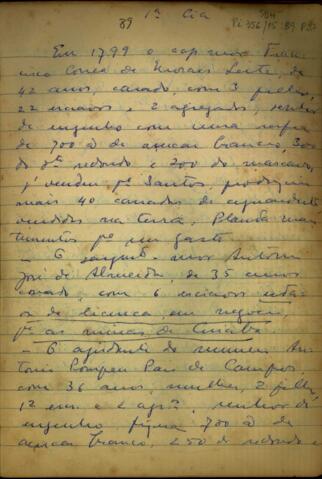 89
1ª Cia
504
Pi 356/15 89 P93
Em 1799 o cap mor Fran
cisco Correa de Moraes Leite, de
42 anos, casado, com 3 filhos,
22 escravos e 2 agregados, senhor
de engenho com uma safra
de 700 @ de açucar branco, 300
do dº redondo e 200 do mascavo,
já vendeu pª Santos, produziu
mais 40 canadas de aguardente
vendidas na terra. Planta man
timentos pª seu gasto
- O sargento mor Antonio
José de Almeida, de 35 anos
casado, com 6 escravos está
de licença, em negocio,
pª as minas de Cuiabá
- O ajudante do numero An
tonio Pompeu Paes de Campos,
com 36 anos, mulher, 2 filhos,
12 esc. e 2 agrº, senhor de
engenho 700 @ de
açucar branco, 250 do redondo e